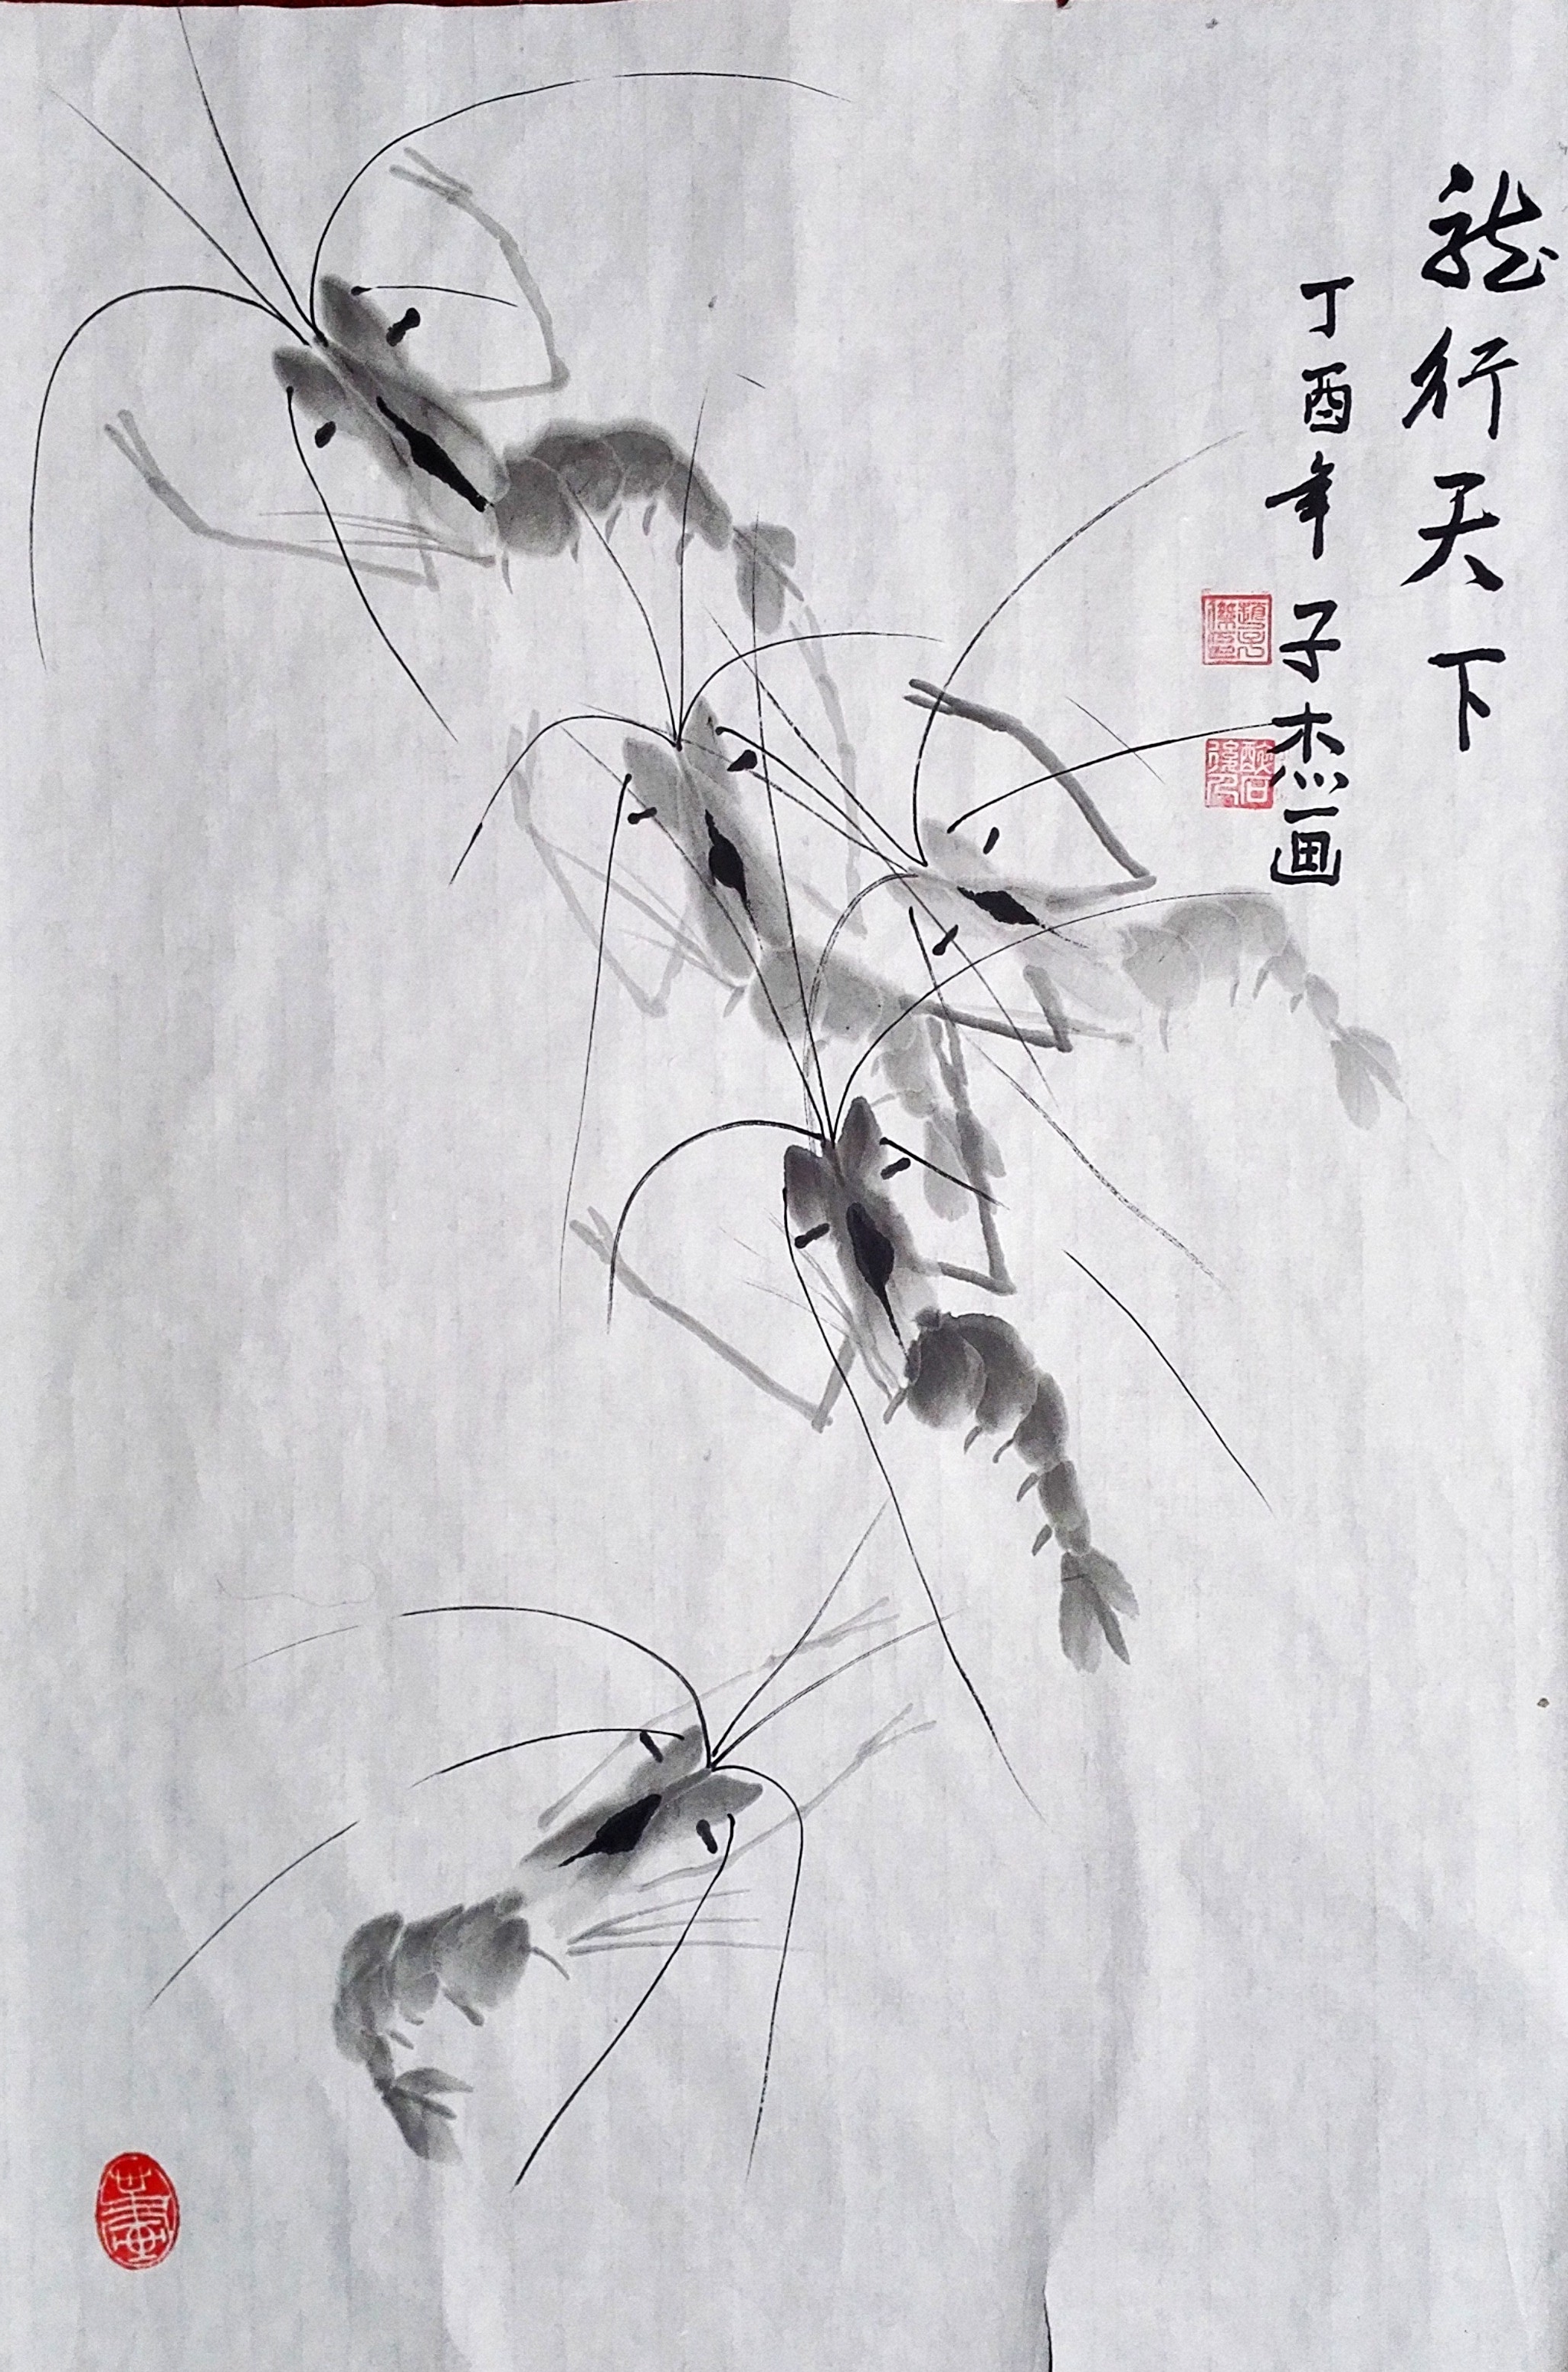 龙行天下
丁酉年子杰画